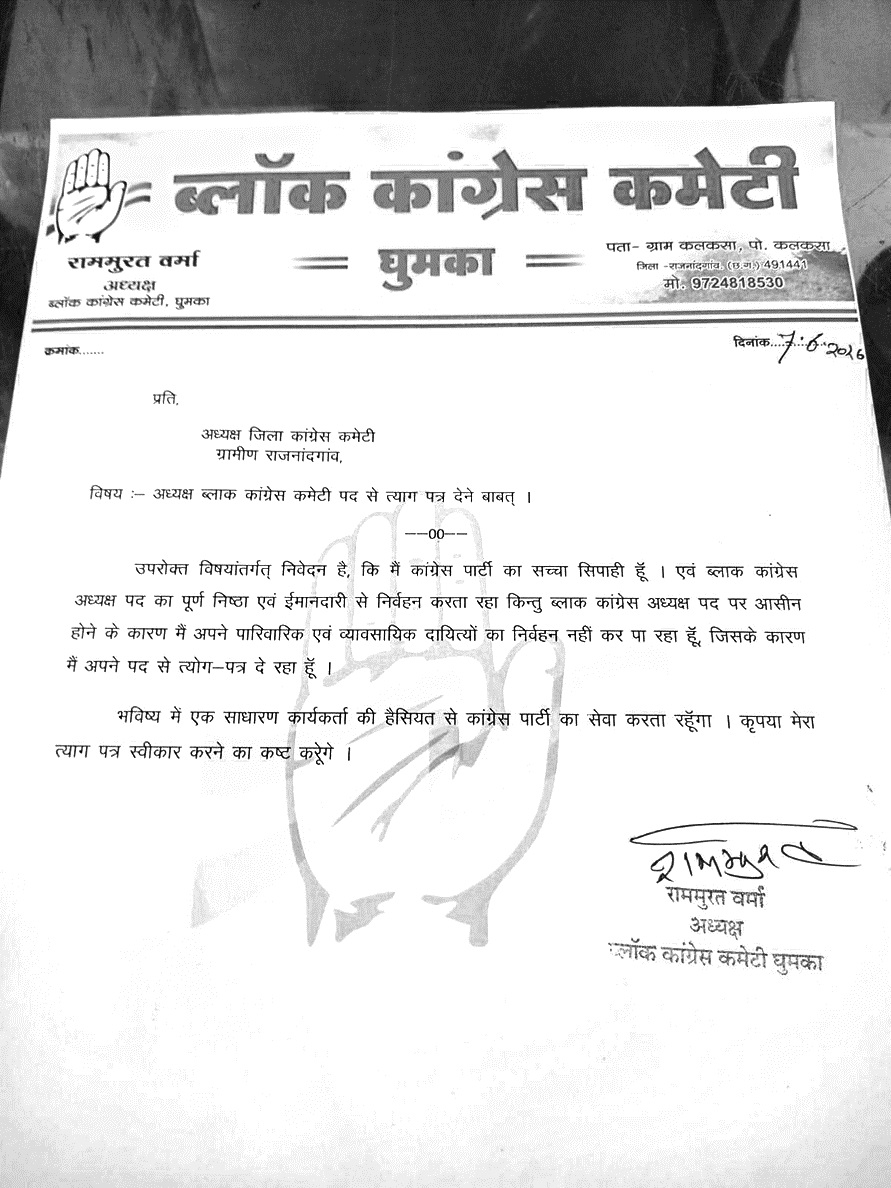 ब्लॉक कांग्रेस कमेटी
घुमका
राममुरत वर्मा
अध्यक्ष
ब्लॉक कांग्रेस कमेटी, घुमका
पता- ग्राम कलकसा, पो. कलकसा
जिला -राजनांदगांव, (छ.ग.) 491441
मो. 9724818530
क्रमांक.......
दिनांक....7.6.2026
प्रति,
अध्यक्ष जिला कांग्रेस कमेटी
ग्रामीण राजनांदगांव,
विषय :– अध्यक्ष ब्लाक कांग्रेस कमेटी पद से त्याग पत्र देने बाबत् ।
——00——
उपरोक्त विषयांतर्गत् निवेदन है, कि मैं कांग्रेस पार्टी का सच्चा सिपाही हूँ । एवं ब्लाक कांग्रेस
अध्यक्ष पद का पूर्ण निष्ठा एवं ईमानदारी से निर्वहन करता रहा किन्तु ब्लाक कांग्रेस अध्यक्ष पद पर आसीन
होने के कारण मैं अपने पारिवारिक एवं व्यावसायिक दायित्यों का निर्वहन नहीं कर पा रहा हूँ, जिसके कारण
मैं अपने पद से त्योग–पत्र दे रहा हूँ ।
भविष्य में एक साधारण कार्यकर्ता की हैसियत से कांग्रेस पार्टी का सेवा करता रहूँगा । कृपया मेरा
त्याग पत्र स्वीकार करने का कष्ट करूेगे ।
राममुरत
राममुरत वर्मा
अध्यक्ष
ब्लॉक कांग्रेस कमेटी घुमका